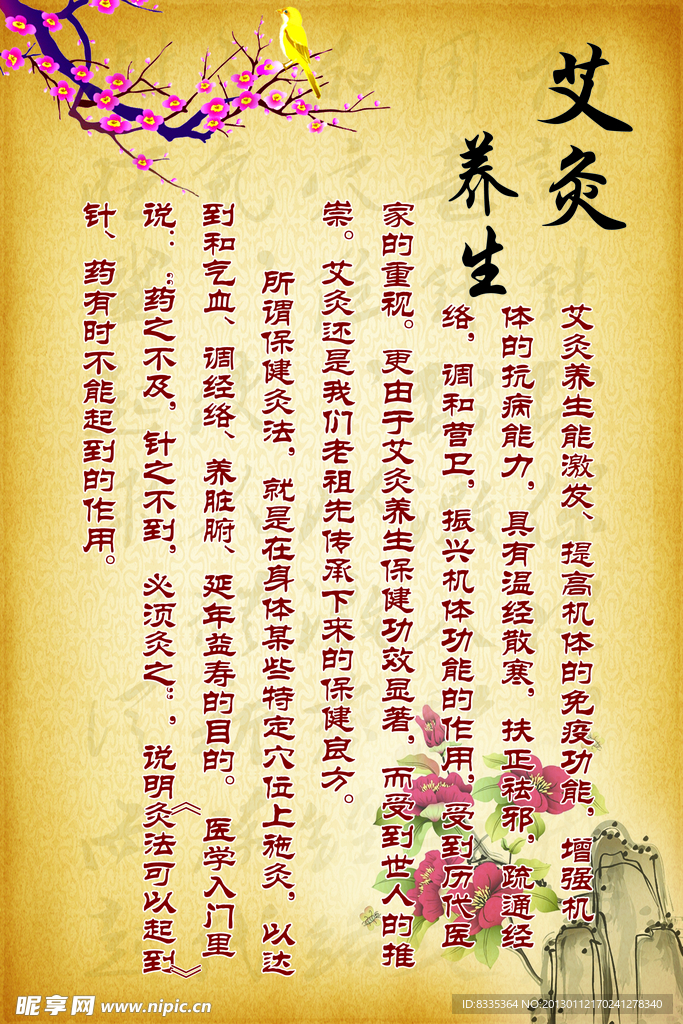 艾灸
养生
艾灸养生能激发、提高机体的免疫功能，增强机
体的抗病能力，具有温经散寒，扶正祛邪，疏通经
络，调和营卫，振兴机体功能的作用，受到历代医
家的重视。更由于艾灸养生保健功效显著，而受到世人的推
崇。艾灸还是我们老祖先传承下来的保健良方。
所谓保健灸法，就是在身体某些特定穴位上施灸，以达
到和气血、调经络、养脏腑、延年益寿的目的。《医学入门里》
说：“药之不及，针之不到，必须灸之”，说明灸法可以起到
针、药有时不能起到的作用。
昵享网 www.nipic.cn
ID:8335364 NO:20130112170241278340